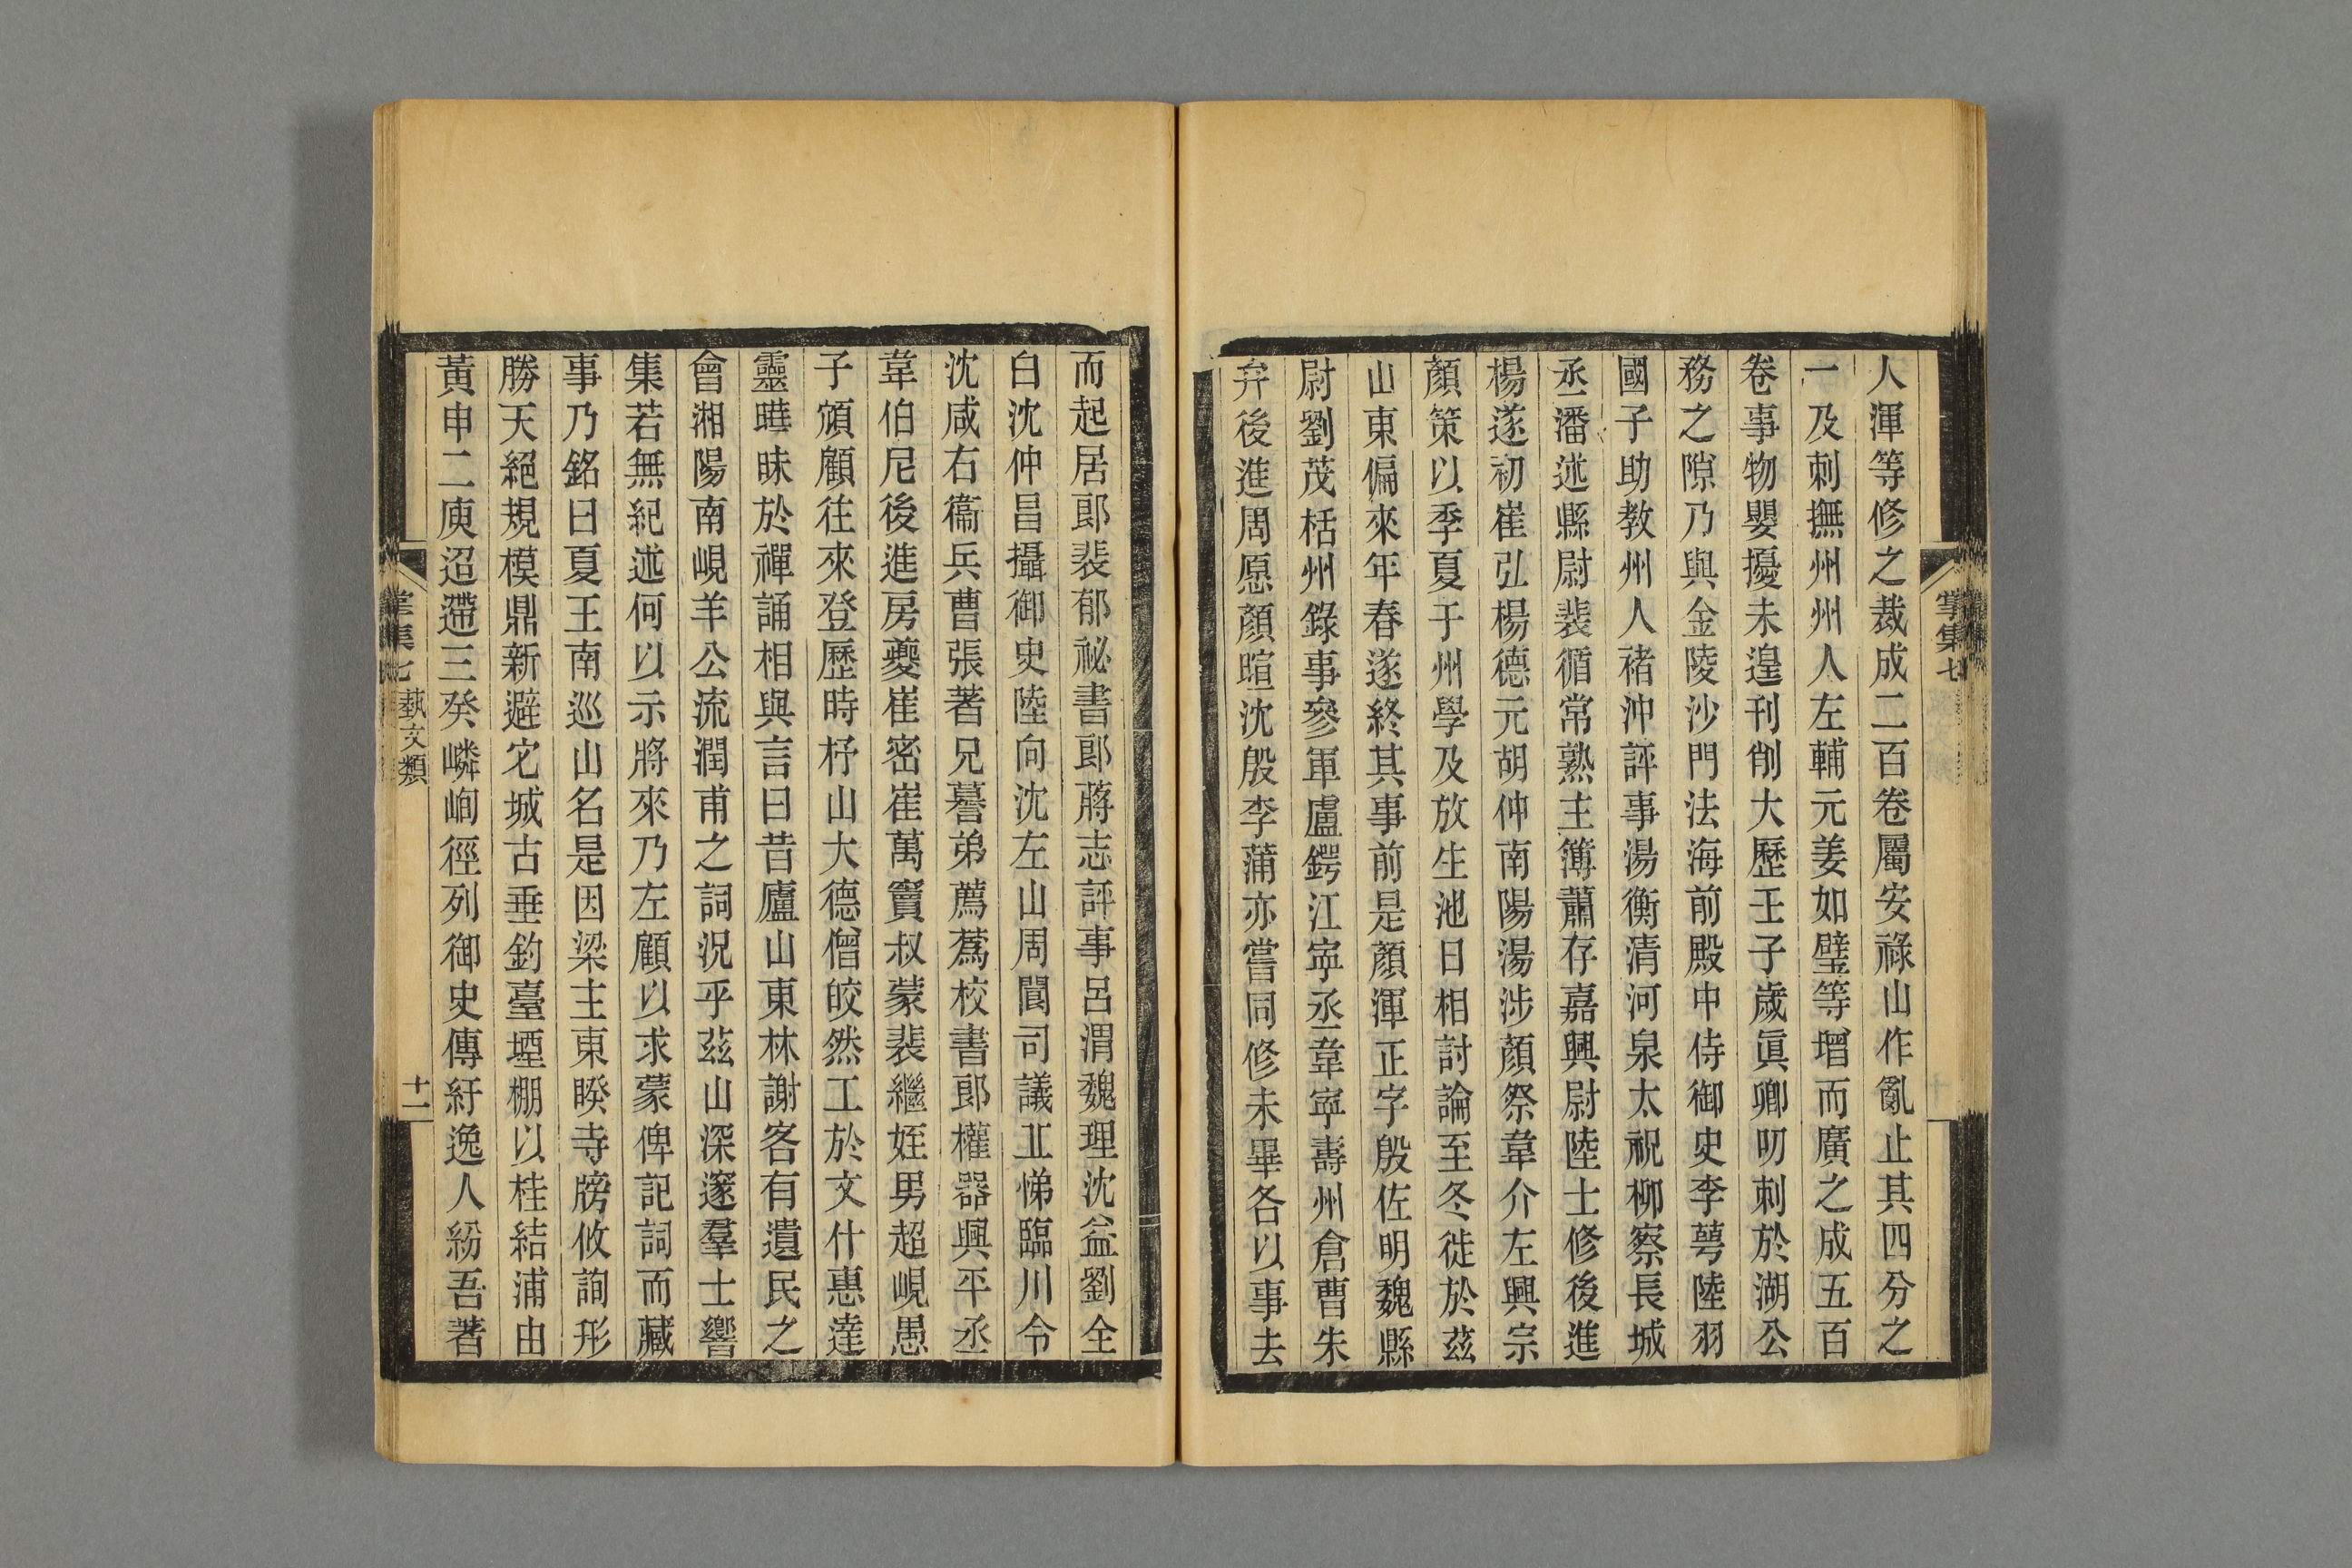 人渾等修之裁成二百卷屬安祿山作亂止其四分之
一及刺撫州州人左輔元姜如璧等增而廣之成五百
卷事物嬰擾未遑刊削大歷壬子歲眞卿叨刺於湖公
務之隙乃與金陵沙門法海前殿中侍御史李萼陸羽
國子助教州人禇沖評事湯衡清河泉太祝柳察長城
丞潘述縣尉裴循常熟主簿蕭存嘉興尉陸士修後進
楊遂初崔弘楊德元胡仲南陽湯涉顏祭韋介左興宗
顏策以季夏于州學及放生池日相討論至冬徙於茲
山東偏來年春遂終其事前是顏渾正字殷佐明魏縣
尉劉茂栝州錄事參軍盧鍔江寧丞韋寧壽州倉曹朱
弁後進周愿顏暄沈殷李蒲亦嘗同修未畢各以事去
掌集七
而起居郎裴郁祕書郎蔣志評事呂渭魏理沈益劉全
白沈仲昌攝御史陸向沈左山周閬司議丘悌臨川令
沈咸右衞兵曹張著兄謩弟薦蔿校書郎權器興平丞
韋伯尼後進房夔崔密崔萬竇叔蒙裴繼姪男超峴愚
子頒顧往來登歷時杼山大德僧皎然工於文什惠達
靈曄昧於禪誦相與言曰昔廬山東林謝客有遺民之
會湘陽南峴羊公流潤甫之詞況乎茲山深邃羣士響
集若無紀述何以示將來乃左顧以求蒙俾記詞而藏
事乃銘曰夏王南巡山名是因梁主東睽寺牓攸詢形
勝天絕規模鼎新避它城古垂釣臺堙棚以桂結浦由
黃申二庾迢遰三癸嶙峋徑列御史傳紆逸人紛吾著
掌集七 藝文類 十一